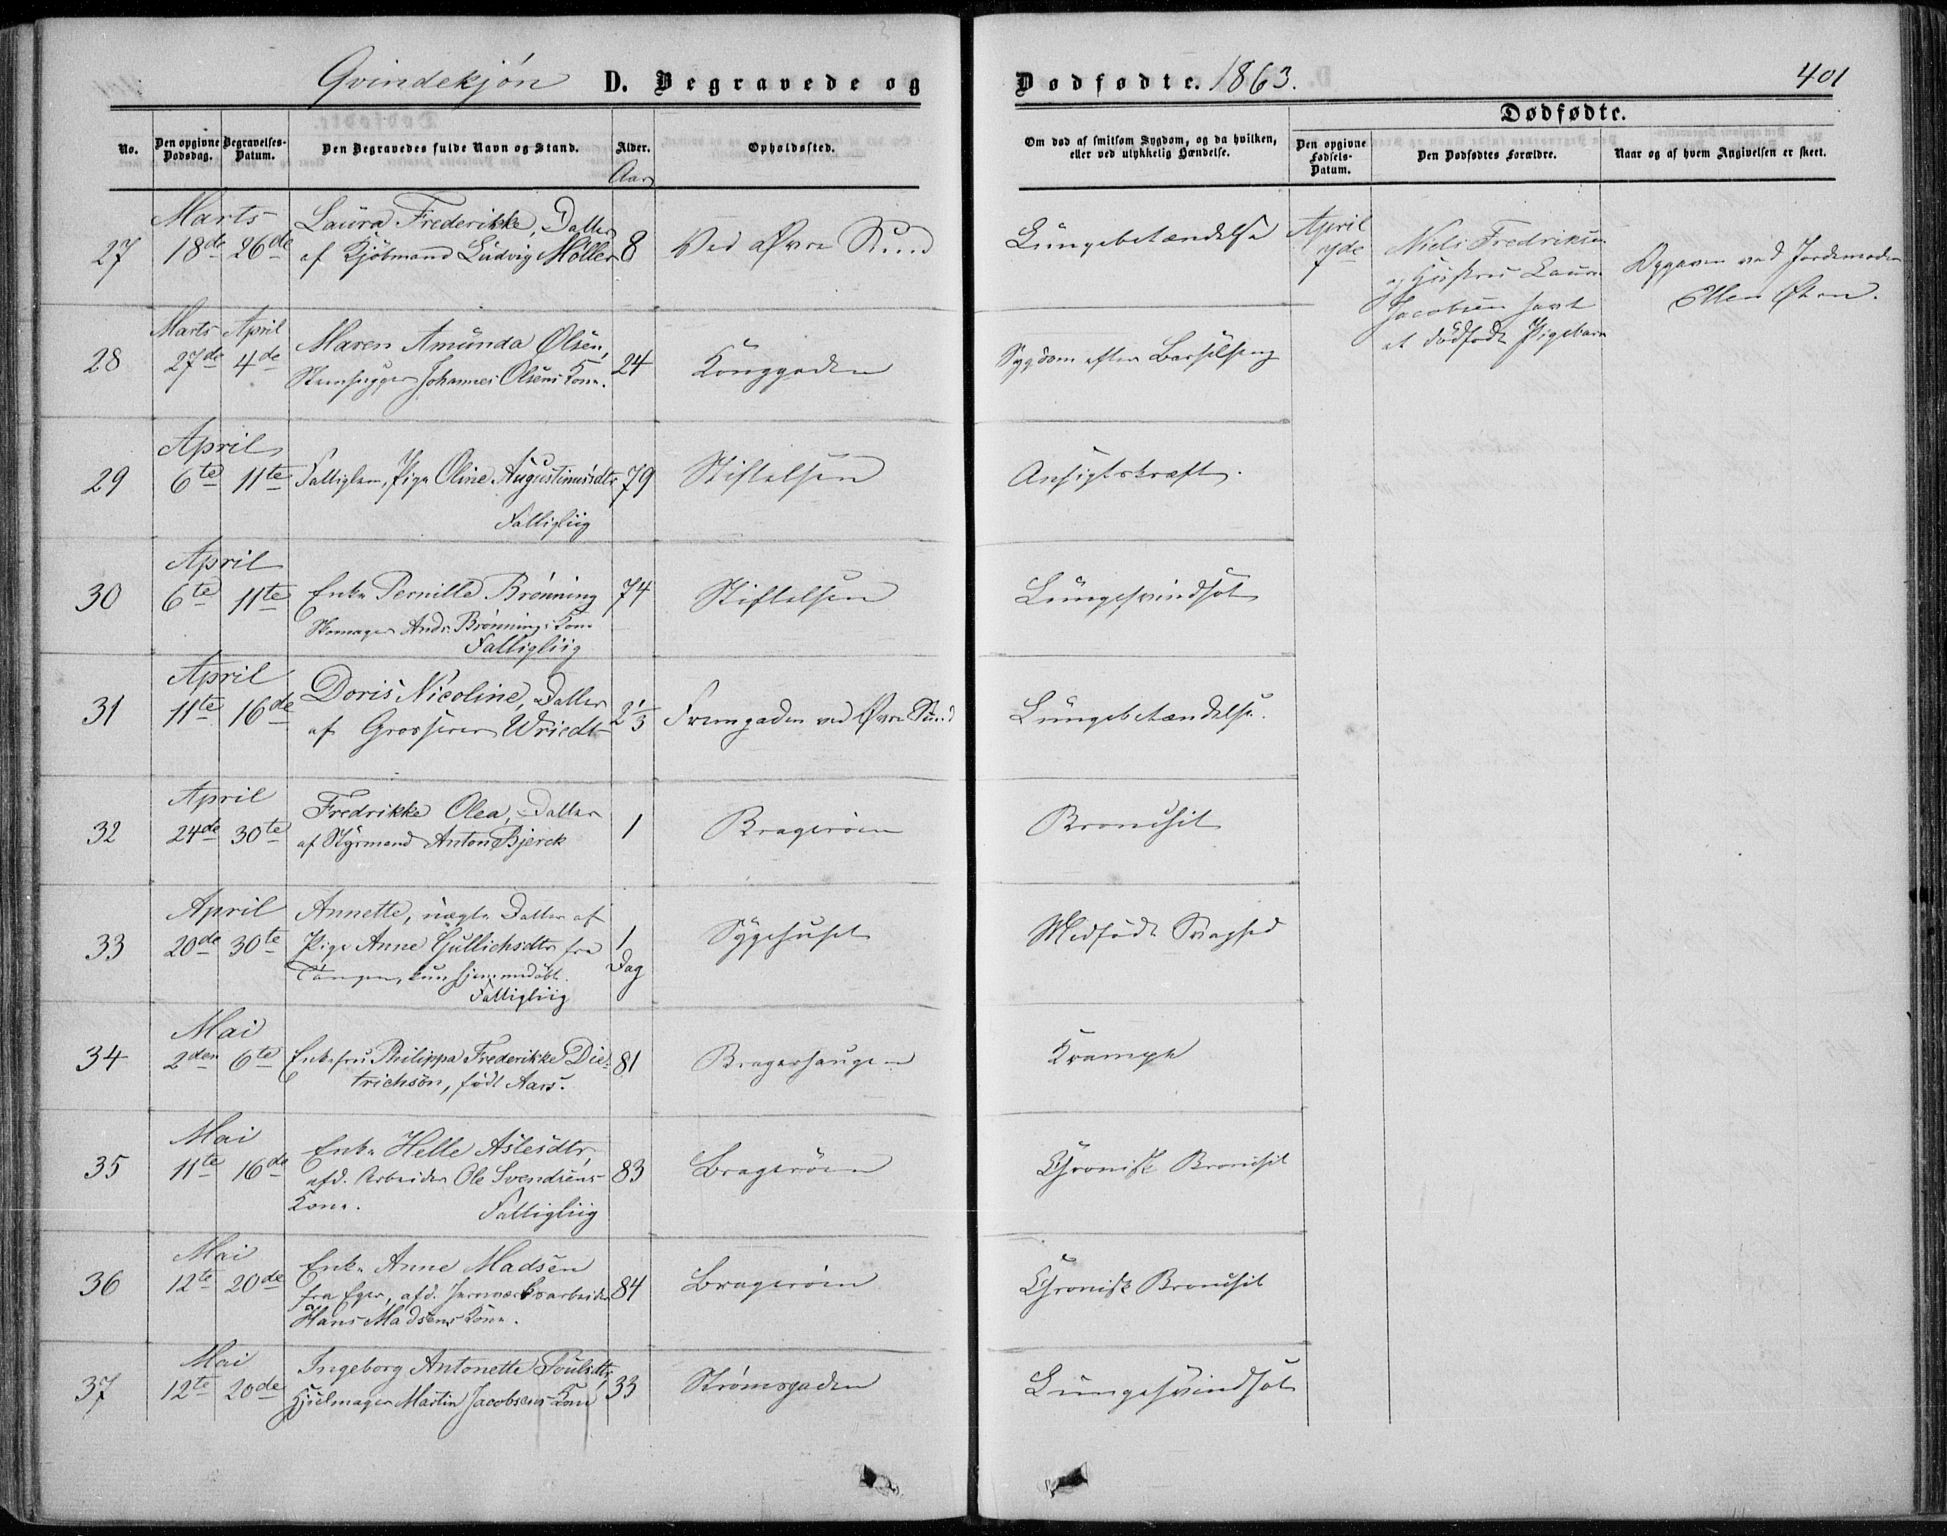 Qvindekjøn D. Begravede og Dødfødte. 1863. 401
No. Den opgivne Dødsdag. Begravelses-Datum. Den Begravedes fulde Navn og Stand. Alder. Opholdssted. Om død af smitsom Sygdom, og da hvilken, eller ved ulykkelig Hændelse. Dødfødte. Den opgivne Fødsels-Datum. Den Dødfødtes Forældre. Naar og af hvem Angivelsen er skeet.
Aar
Marts Laura Frederikke, Datter
27 18de 26de af Kjøbmand Ludvig Møller 8 Ved Øvre Sund Lungebetændelse
April
7de
Niels Fredriksen
og Hustru Laura
Jacobsen havt
et dødfødt Pigebarn
Opgaven ved Jordemoder
Ellen
Marts April Maren Amunda Olsen,
28 27de 4de Steenhugger Johannes Olsens Kone. 24 Konggaden Sygdom efter Barselseng
April
29 6te 11te Fattiglem, Pige Oline Augustinusdtr 79 Stiftelsen Ansigtskræft.
Fattigliig
April
30 6te 11te Enke Pernille Brønning 74 Stiftelsen Lungesvindsot
Skomager Ands. Brønnings Kone
Fattigliig
April Doris Nicoline, Datter
31 11te 16de af Grosserer Wriedt 2 1/3 Fremgaden ved Øvre Sund Lungebetændelse.
April Fredrikke Olea, Datter
32 24de 30te af Styrmand Anton Bjerck 1 Bragerøen Bronchit
April Annette, uægte Datter af
33 20de 30te Pige Anne Gullichsdtr fra 1 Dag Sygehuset Medfødt Svaghed
Tangen, kun hjemmedøbt.
Fattigliig
Mai
34 2den 6te Enkefru Philippa Frederikke Die- 81 Bragerhaugen Krampe
trichsøn, født Aars.
Mai Enke Helle Aslesdtr,
35 11te 16de afd. Arbeider Ole Svendsens 83 Bragerøen Chronisk Bronchit
Kone. Fattigliig
Mai Enke Anne Madsen
36 12te 20de fra Eger, afd. Jernværksarbeider 84 Bragerøen Chronisk Bronchit
Hans Madsens Kone.
Mai Ingeborg Antonette Poulsdtr,
37 12te 20de Hjulmager Martin Jacobsens Kone 33 Strømsgaden Lungesvindsot